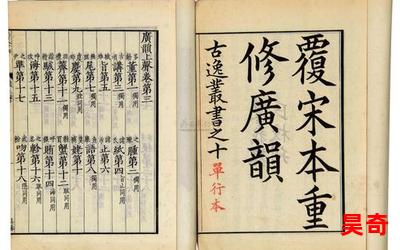 覆宋本重
修廣韻
古逸叢書之十 單行本
廣韻上聲卷第三
董第一獨用 腫第二獨用
講第三獨用 紙第四
旨第五 止第六
尾第七獨用 語第八獨用
麌第九 姥第十
薺第十一獨用 蟹第十二
駭第十三 賄第十四
海第十五 軫第十六
準第十七 吻第十八
昊奇